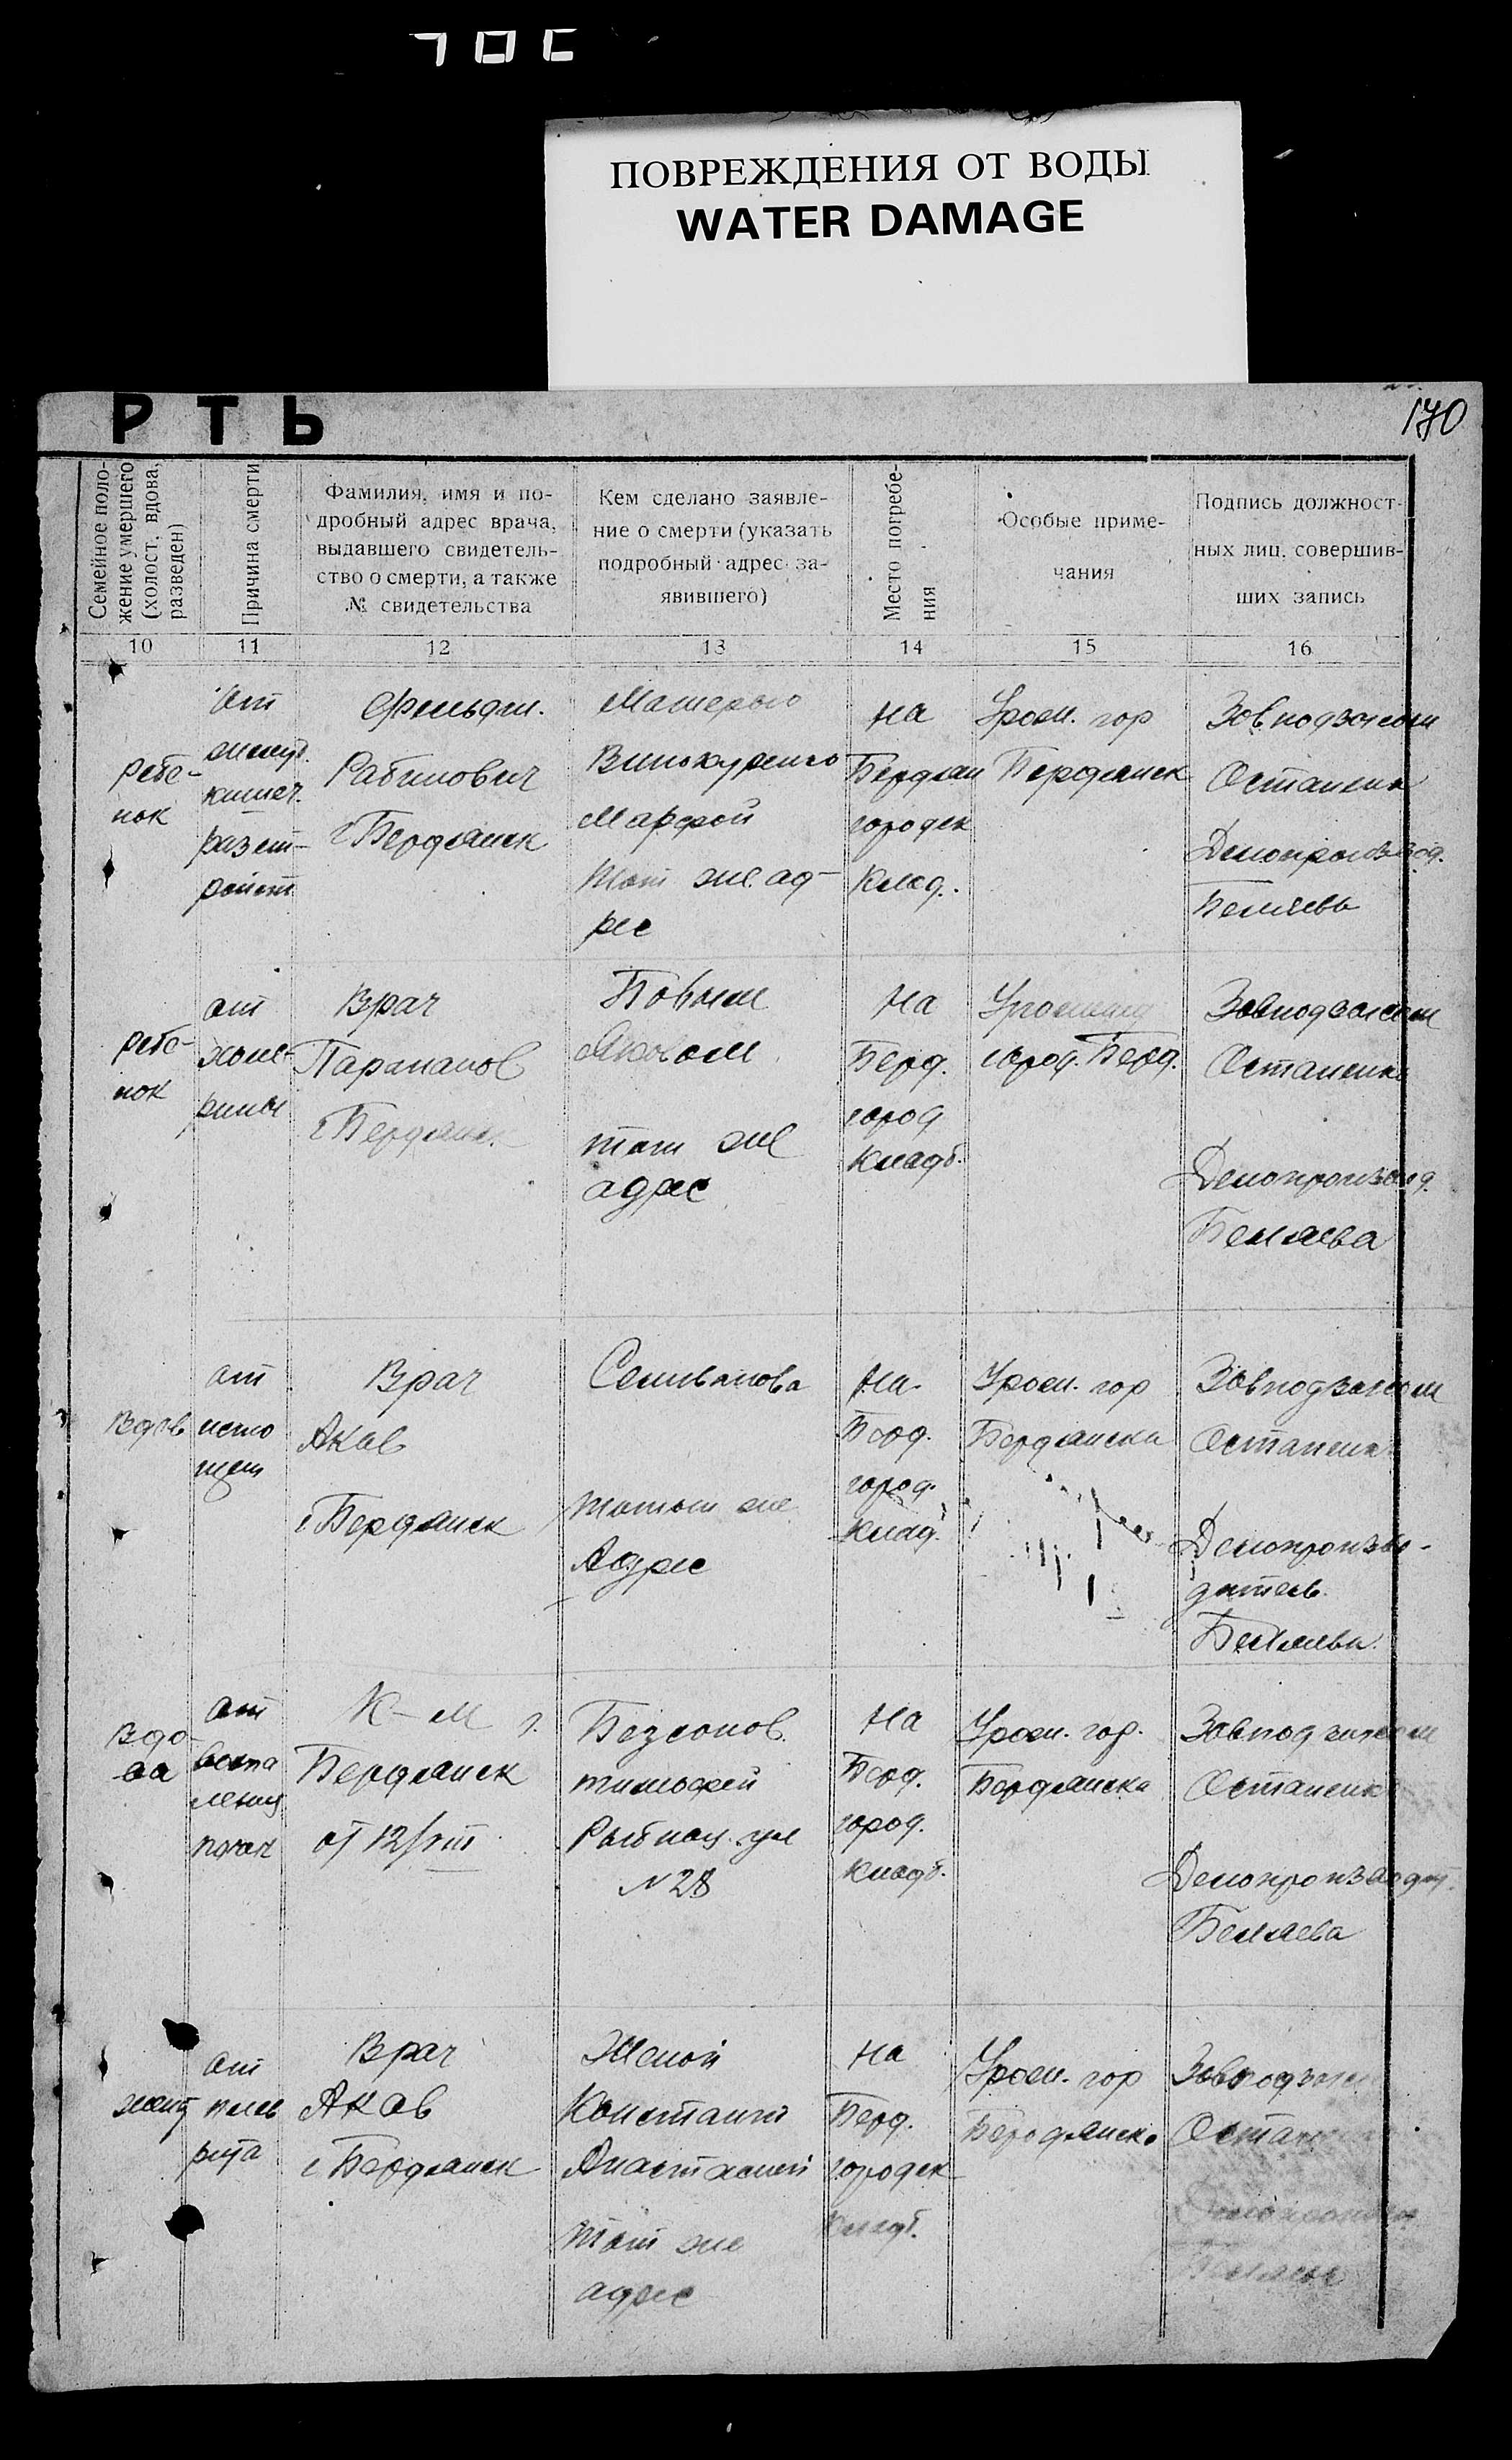 ПОВРЕЖДЕНИЯ ОТ ВОДЫ
WATER DAMAGE
РТЬ
170
Семейное поло-
жение умершего
(холост, вдова,
разведен)
Причина смерти
Фамилия, имя и по-
дробный адрес врача,
выдавшего свидетель-
ство о смерти, а также
№ свидетельства
Кем сделано заявле-
ние о смерти (указать
подробный адрес за-
явившего)
Место погребе-
ния
Особые приме-
чания
Подпись должност-
ных лиц, совершив-
ших запись
10
11
12
13
14
15
16
ребе-
нок
от
желуд.
кишеч.
расст-
ройст
Фельдш.
Рабинович
г Бердянск
Матерью
Винокуренко
Марфой
Тот же ад-
рес
на
Бердян
городск
Клад.
Урож. гор
Бердянск
Завподзагсом
Остапенко
Делопроизвод.
Беляева
ребе-
нок
от
холе-
рины
Врач
Параманов
г Бердянск
тот же
адрес
На
Берд.
город
Кладб.
город. Берд.
Завподзагсом
Остапенко
Делопроизвод.
Беляева
Вдов
от
исто
щен
Врач
Акав
г Бердянск
Селиванова
же
Адрес
На
Берд.
город.
Клад.
Урож. гор
Бердянска
Завподзагсом
Остапенко
Делопроизво-
дитель
Беляева
Вдо-
ва
от
воспа
ления
почек
К-М г.
Бердянск
от 12/VIII
Безсонов
тимофей
Рыбная ул
N 28
На
Берд.
город.
Кладб.
Урож. гор.
Бердянска
Завподзагсом
Остапенко
Делопроизводит.
Беляева
женат
от
плев
рита
Врач
Акав
г Бердянск
Женой
Констант
Анастасией
Тот же
адрес
На
Берд.
городск
Кладб.
Урож. гор
Бердянска
Завподзагсом
Остапенко